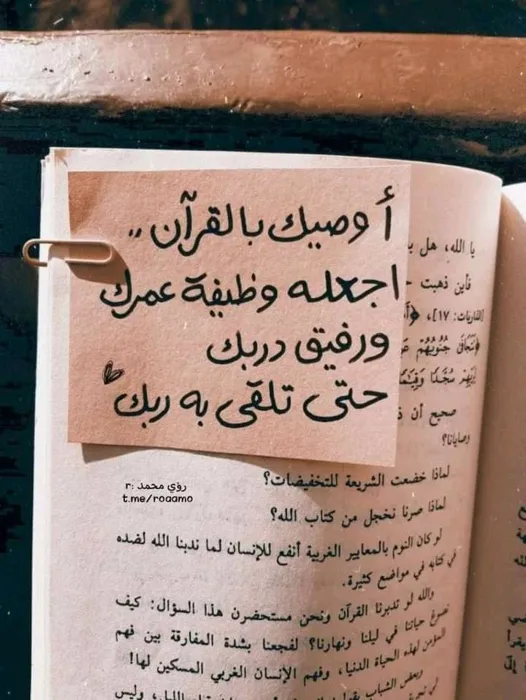 أوصيك بالقرآن ..
اجعله وظيفة عمرك
ورفيق دربك
حتى تلقى به ربك
رؤي محمد :r
t.me/roaamo
يا الله، هل
فأين ذهبت
[الذاريات: ١٧]،
جُنُوبُهُمْ
سُجَّدًا
صحيح أن
وصايانا؟
لماذا خضعت الشريعة للتخفيضات؟
لماذا صرنا نخجل من كتاب الله؟
لو كان النوم بالمعايير الغربية أنفع للإنسان لما ندبنا الله لضده
في كتابه في مواضع كثيرة.
والله لو تدبرنا القرآن ونحن مستحضرن هذا السؤال: كيف
نصوغ حياتنا في ليلنا ونهارنا؟ لفجعنا بشدة المفارقة بين فهم
المؤمن لهذه الحياة الدنيا، وفهم الإنسان الغربي المسكين لها!
وبعض الشباب
الليل، وليس